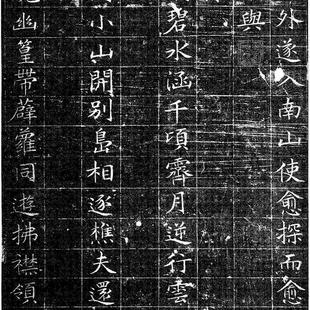 外遂入南山使愈探而愈
與
碧水涵千頃霽月逆行雲
小山開別島相逐樵夫還
幽篁帶薜蘿同遊拂襟領